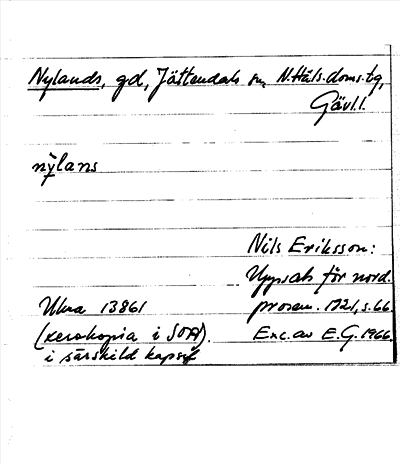 Nylands, gd, Jättendals sn, N.Häls. doms.tg,
Gävl.l.
nỳlans
Nils Eriksson:
Uppsats för nord.
prosem. 1921, s.66.
Ulma 13861
(xerokopia i SOA).
i särskild kapsyl
Exc. av E.G. 1966.